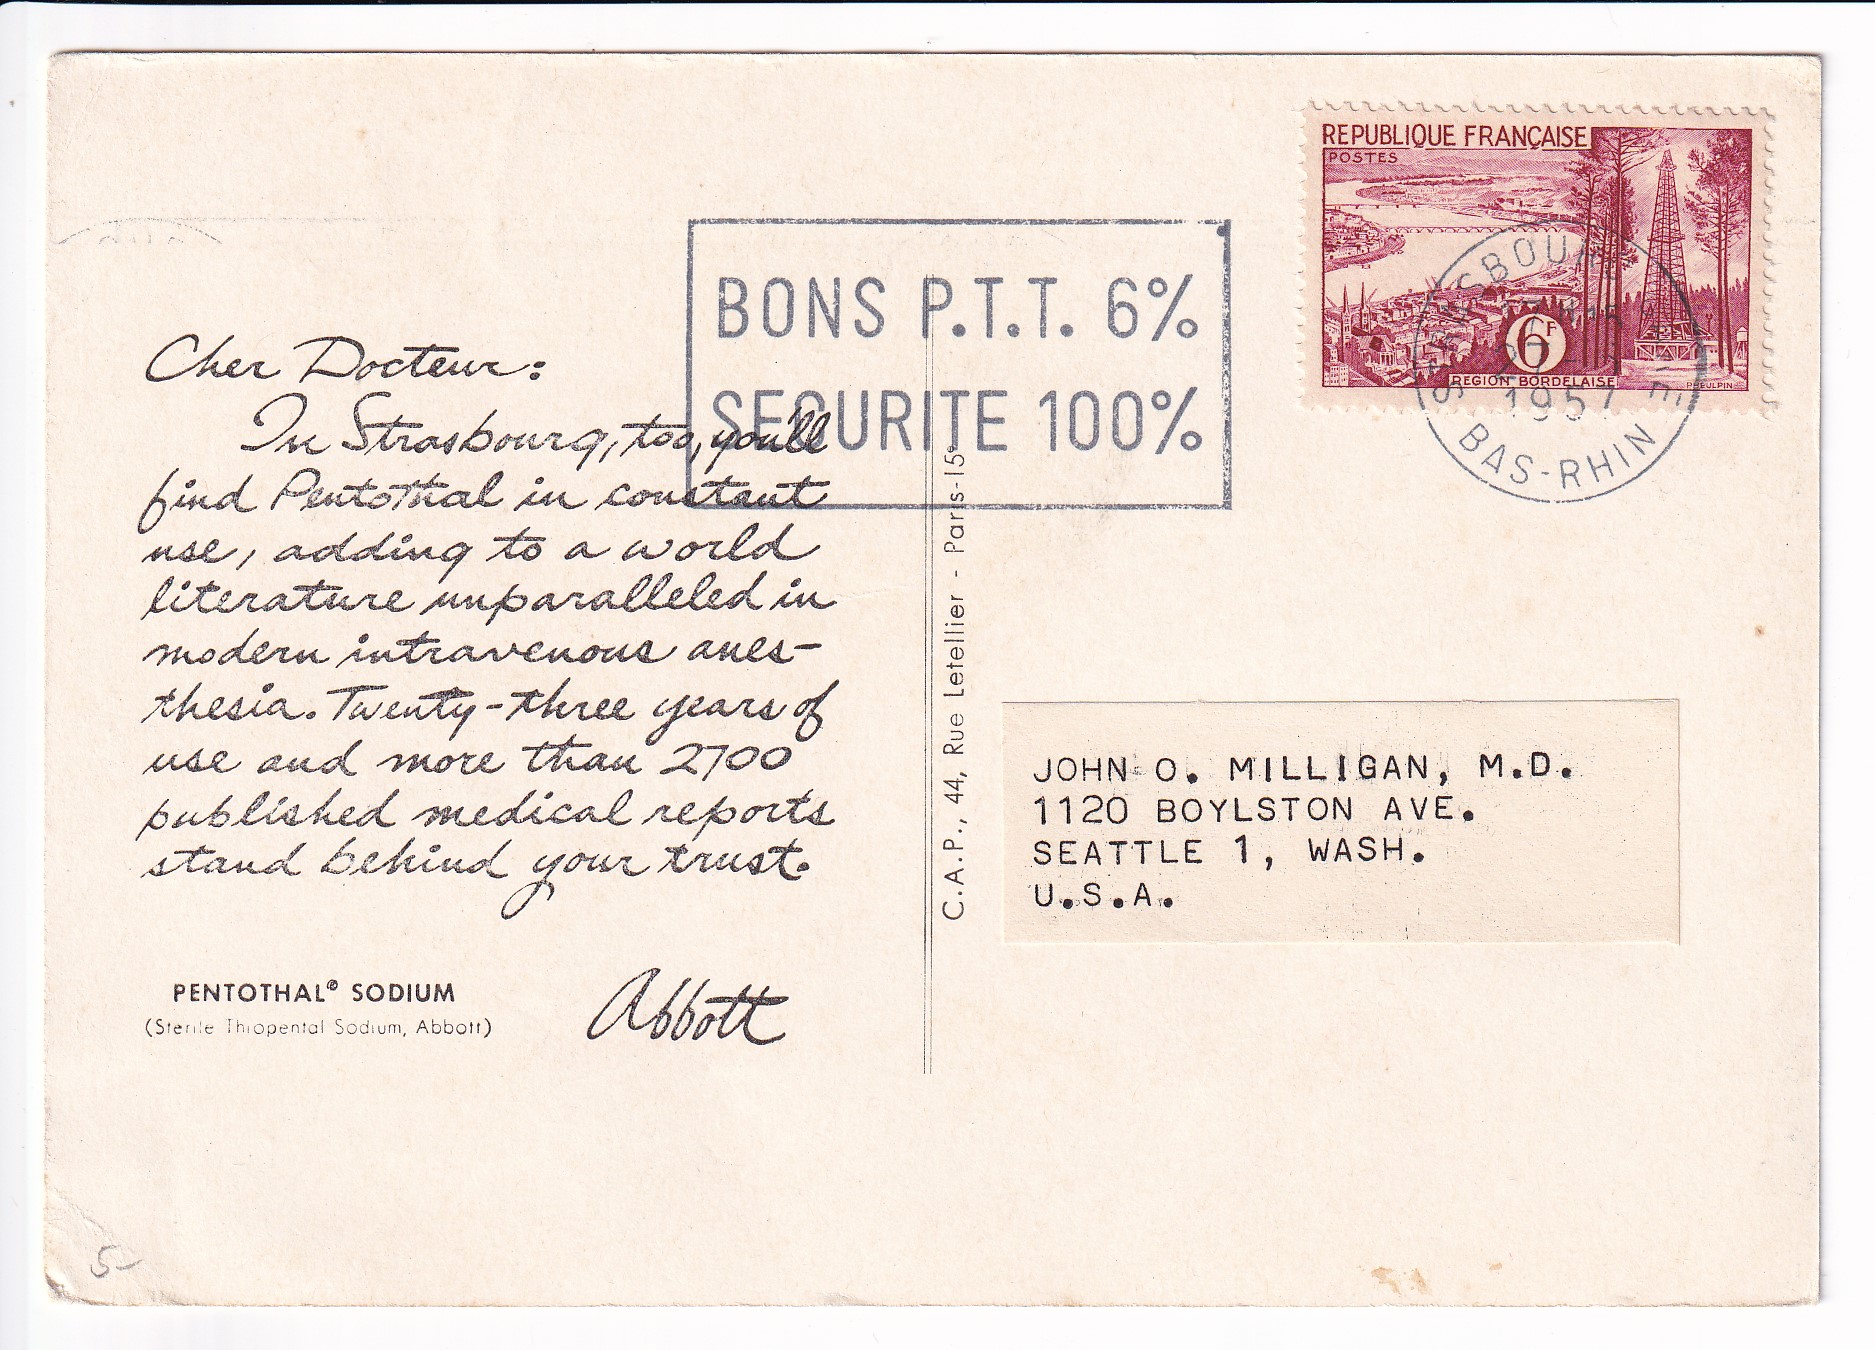 REPUBLIQUE FRANÇAISE
POSTES
6F
REGION BORDELAISE
PHEULPIN
1957
BAS-RHIN
BONS P.T.T. 6%
SECURITE 100%
Cher Docteur:
In Strasbourg, too, you'll
find Pentothal in constant
use, adding to a world
literature unparalleled in
modern intravenous anes-
thesia. Twenty-three years of
use and more than 2700
published medical reports
stand behind your trust.
PENTOTHAL® SODIUM
(Sterile Thiopental Sodium, Abbott)
Abbott
C.A.P., 44, Rue Letellier - Paris-15e
JOHN O. MILLIGAN, M.D.
1120 BOYLSTON AVE.
SEATTLE 1, WASH.
U.S.A.
5-